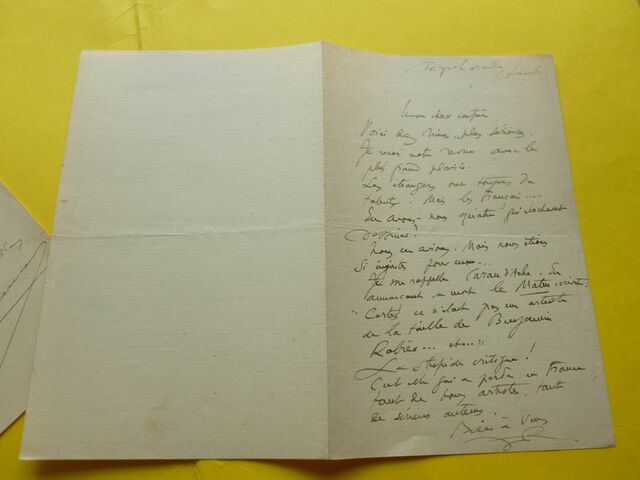 Mon cher confrère
Voici des rimes.. plus sérieuses.
Je reçois votre revue avec le
plus grand plaisir.
Les étrangers ont toujours du
talent. Mais les Français....
En avons-nous quatre qui sachent
dessiner?
Nous en avions. Mais nous étions
si injustes pour eux...
Je me rappelle Caran d'Ache. En
annonçant sa mort le Matin écrivit:
"Certes ce n'était pas un artiste
de la taille de Benjamin
Rabier... etc..."
La stupide critique!
C'est elle qui a perdu en France
tant de bons artistes, tant
de sérieux auteurs.
Bien à Vous